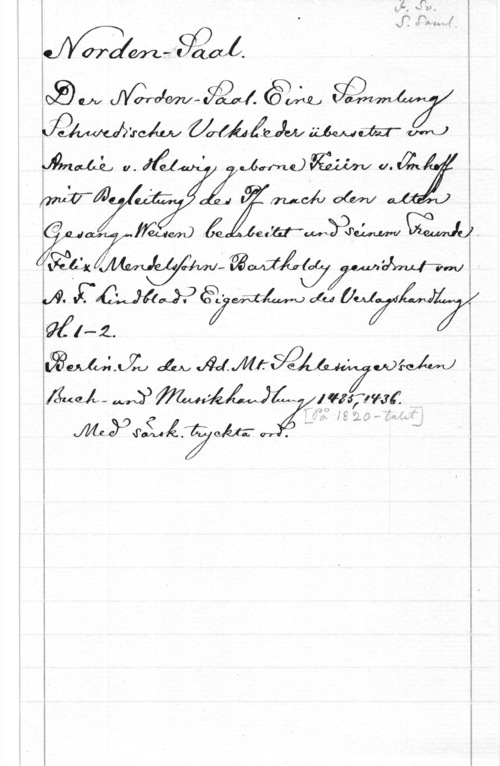 F. Sv.
S. Saml.
Norden-Saal.
Der Norden-Saal. Eine Sammlung
Schwedischer Volkslieder übersetzt von
Amalie v. Helwig geborne Freiin v. Imhoff
mit Begleitung des Pf nach den alten
Gesang-Weisen bearbeitet und seinem Freunde
Felix Mendelssohn-Bartholdy gewidmet von
A. F. Lindblad. Eigenthum des Verlagshandlung
H. 1-2.
Berlin. In der Ad. Mt. Schlesinger'schen
Buch- und Musikhandlung 1435, 1436.
[På 1820-talet]
Med särsk. tryckta ord.